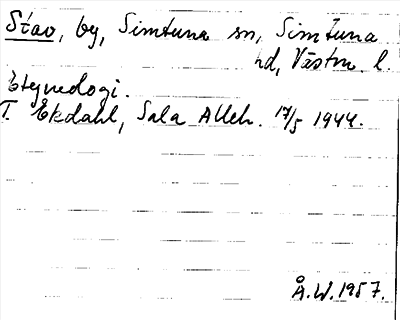 Stav, by, Simtuna sn, Simtuna
hd, Västm. l.
Etymologi.
T. Ekdahl, Sala Alleh. 17/5 1944.
Å.W.1957.